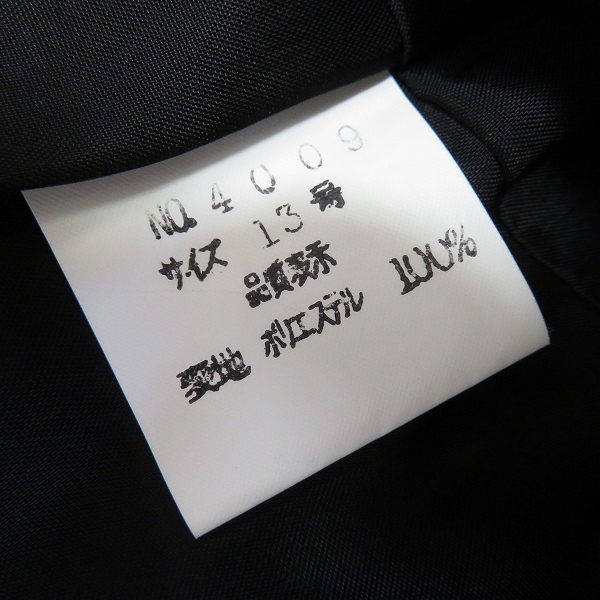 NO. 4009
サイズ 13号
品質表示
表地 ポリエステル 100%